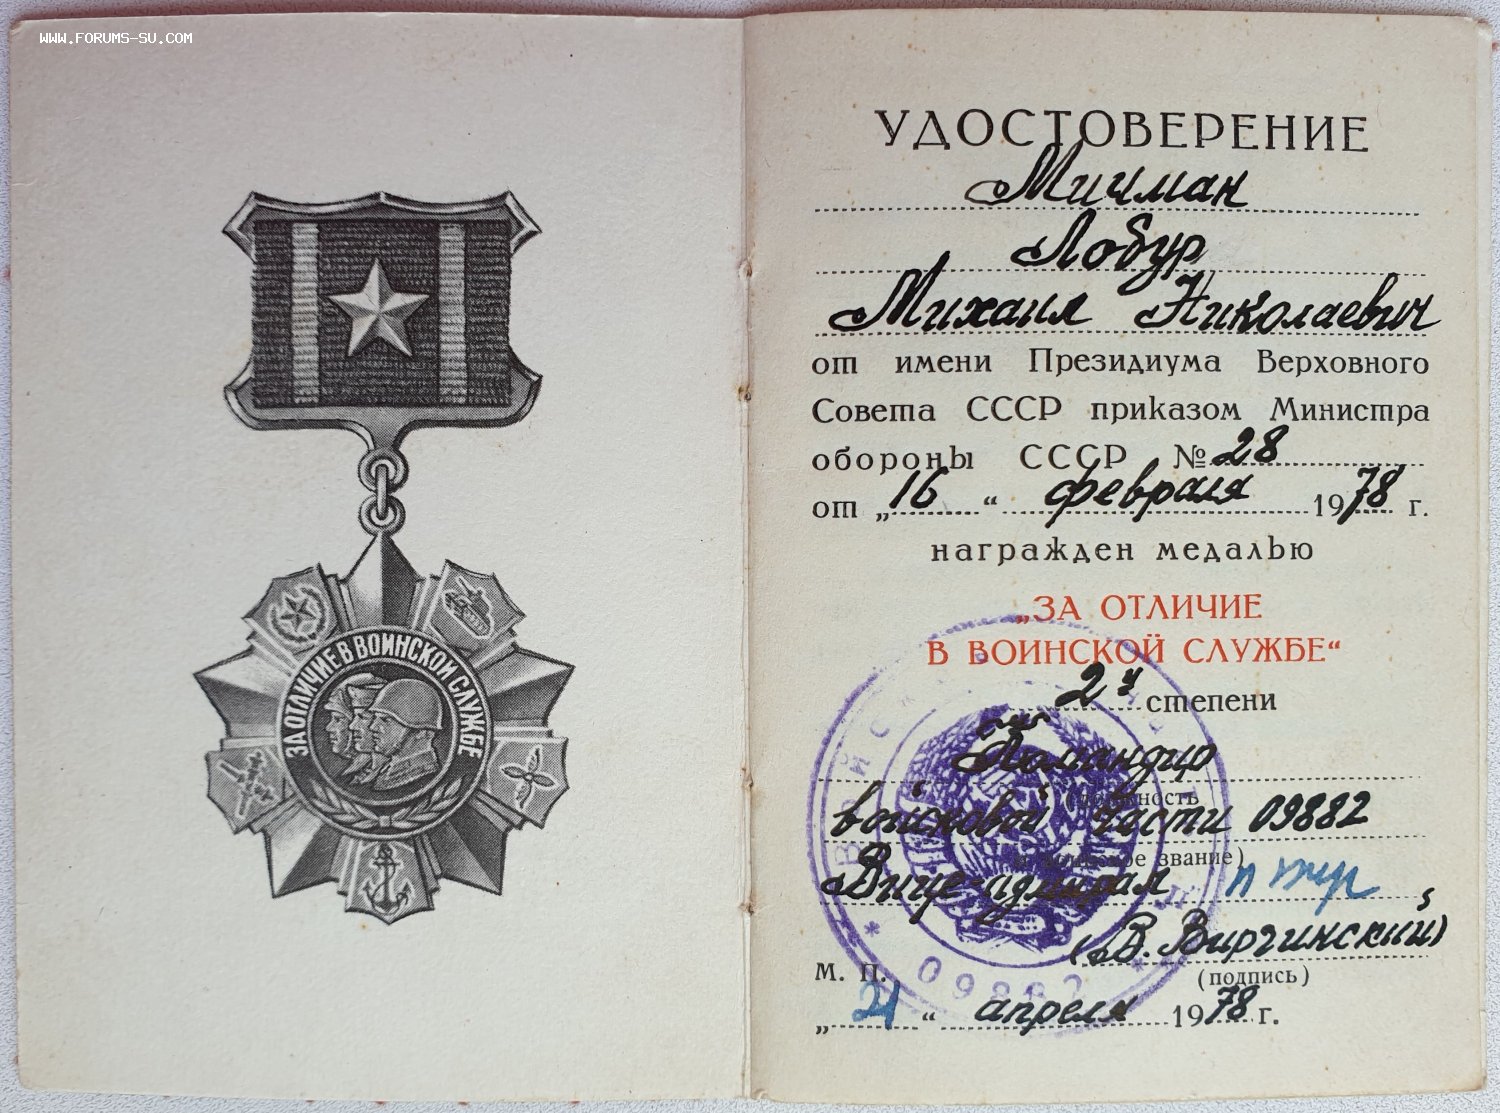 WWW.FORUMS-SU.COM
ЗА ОТЛИЧИЕ В ВОИНСКОЙ СЛУЖБЕ
УДОСТОВЕРЕНИЕ
Мичман
Лобур
Михаил Николаевич
от имени Президиума Верховного
Совета СССР приказом Министра
обороны СССР № 28
от „16“ февраля 1978 г.
награжден медалью
„ЗА ОТЛИЧИЕ
В ВОИНСКОЙ СЛУЖБЕ“
2й степени
Командир
(должность
войсковой части 09882
звание)
Вице-адмирал
(В. Виргинский)
М. П. (подпись)
„21“ апреля 1978 г.
09882